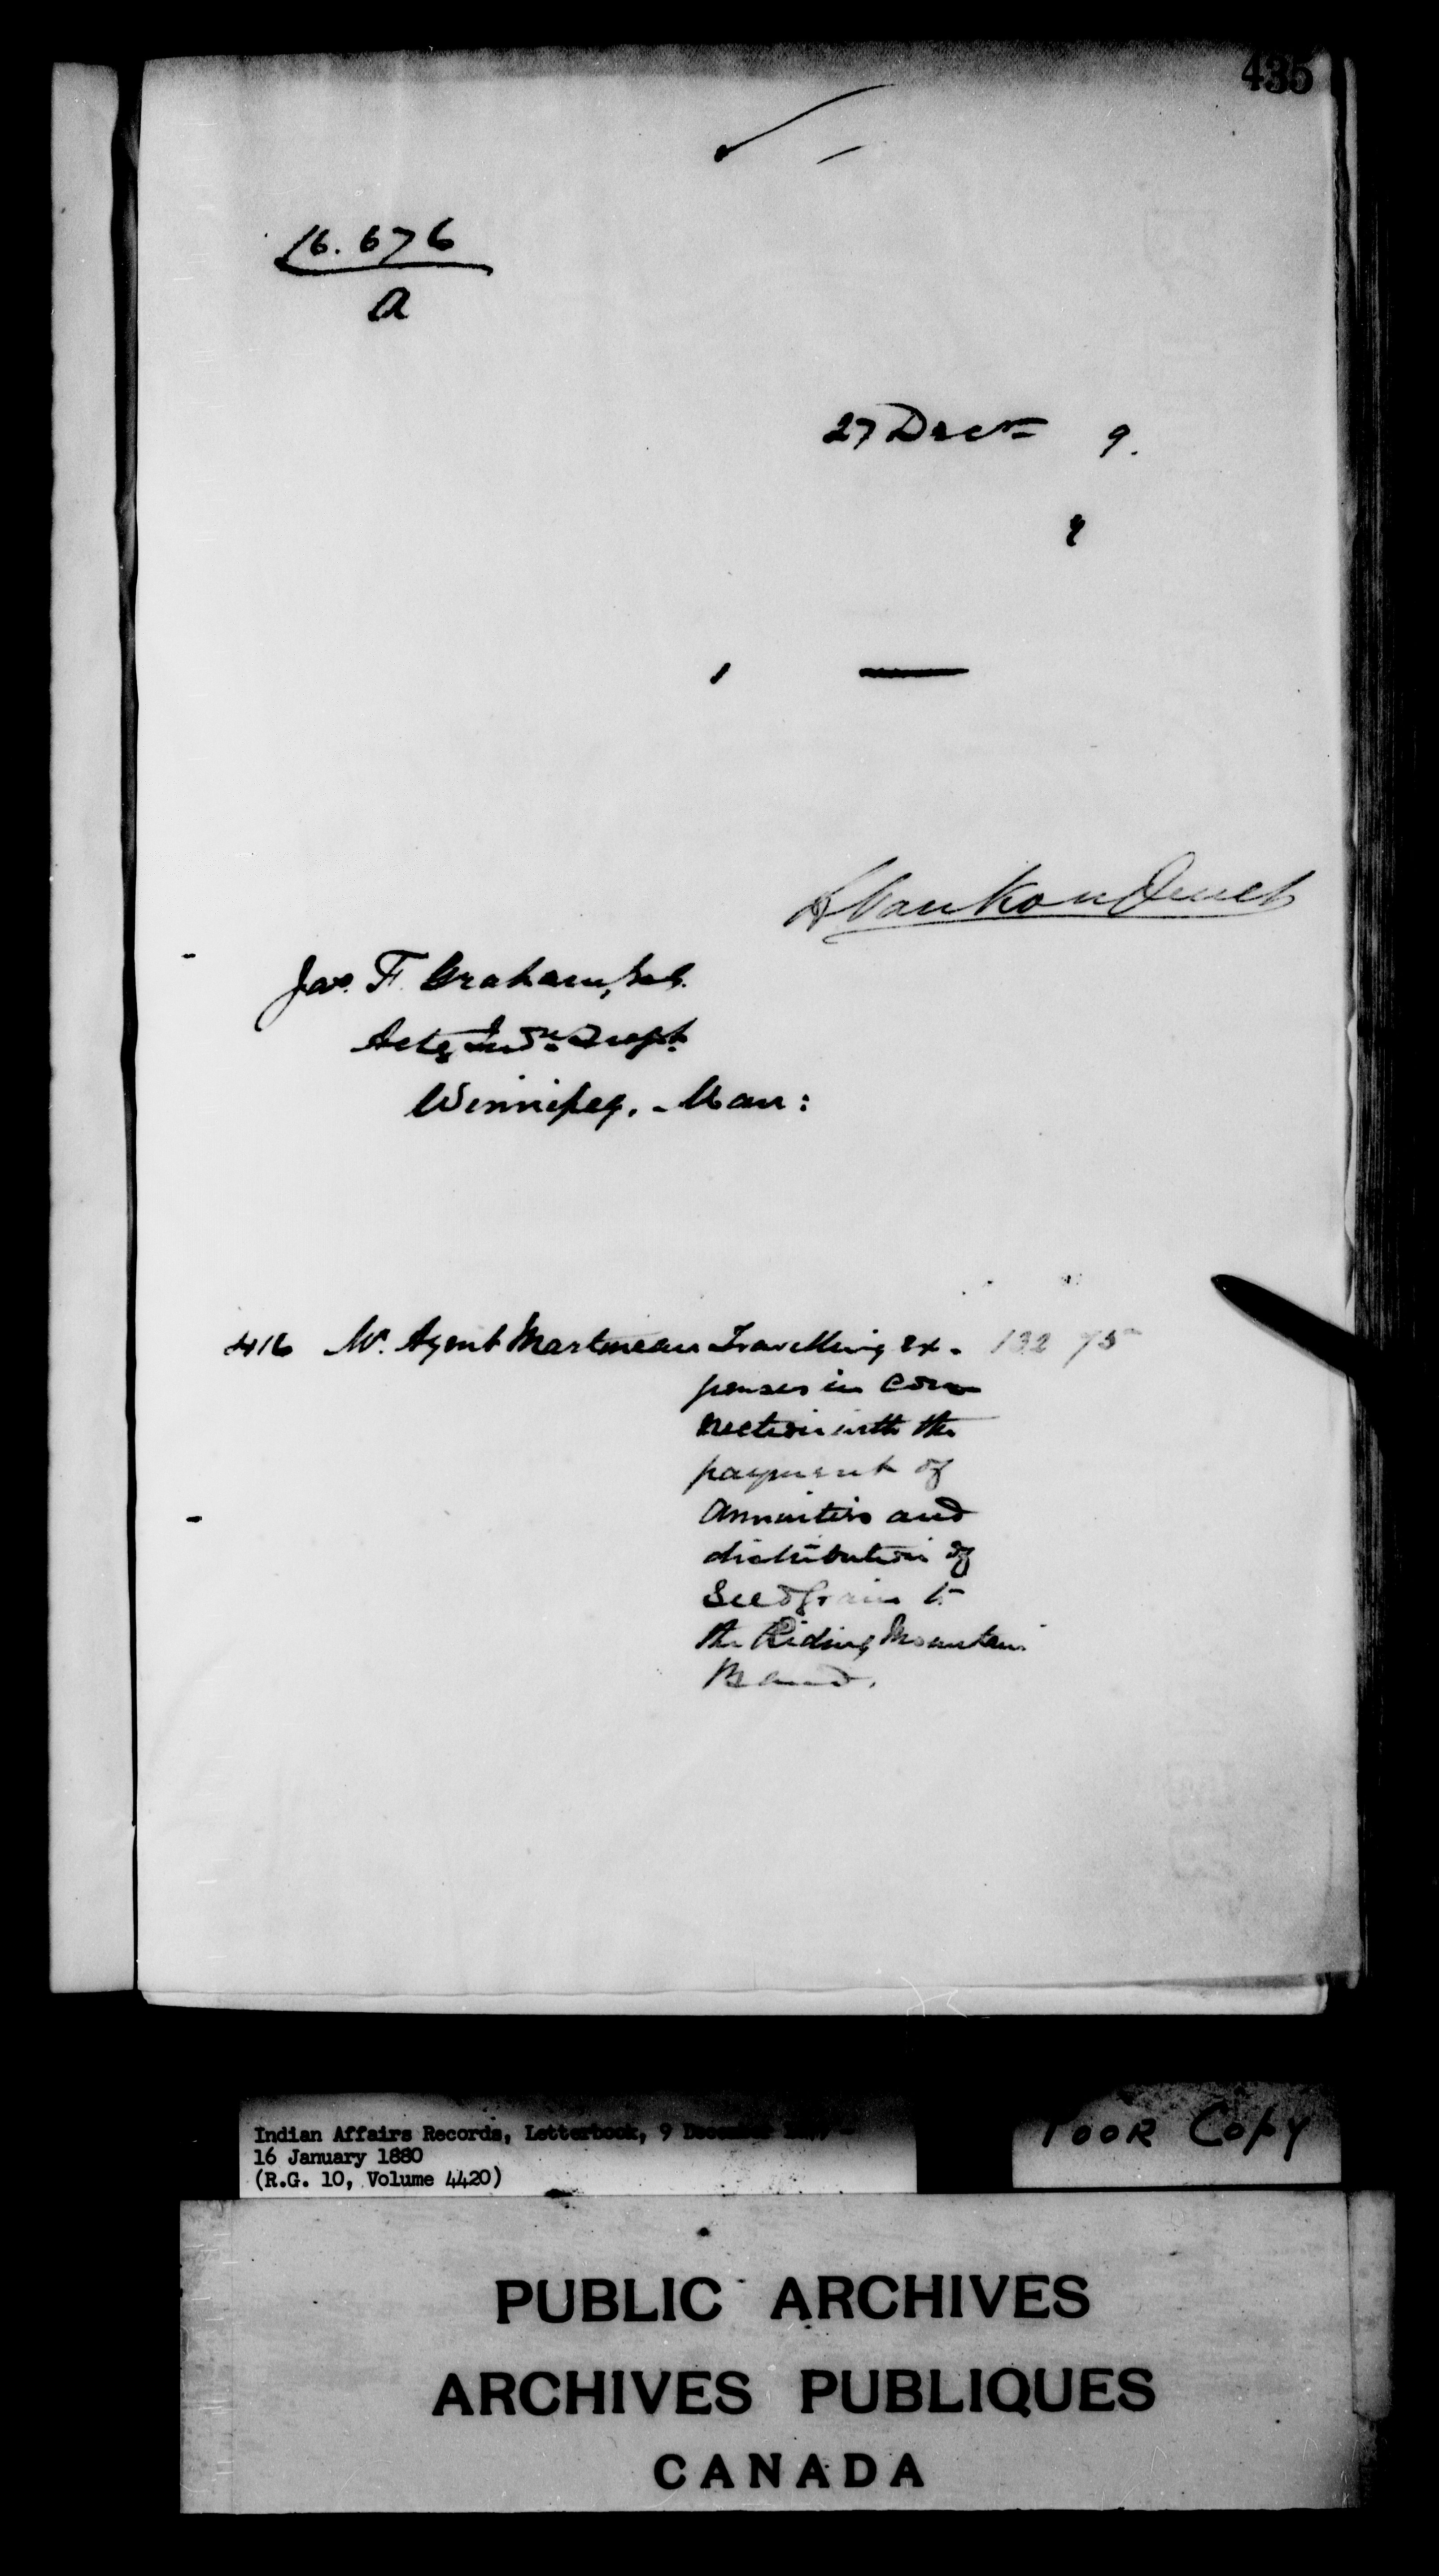 435
16.676
A
27 Decr 9.
9
1 —
L VanKoughnet
Jas. F. Graham, Esq.
Actg Indn Supt.
Winnipeg. - Man:
416 Mr. Agent Martineau Travelling ex- 132 75
penses in con
nection with the
payment of
Annuities and
distribution of
Seed Grain to
the Riding Mountain
Band.
Indian Affairs Records, Letterbook, 9 December
16 January 1880
(R.G. 10, Volume 4420)
POOR COPY
PUBLIC ARCHIVES
ARCHIVES PUBLIQUES
CANADA